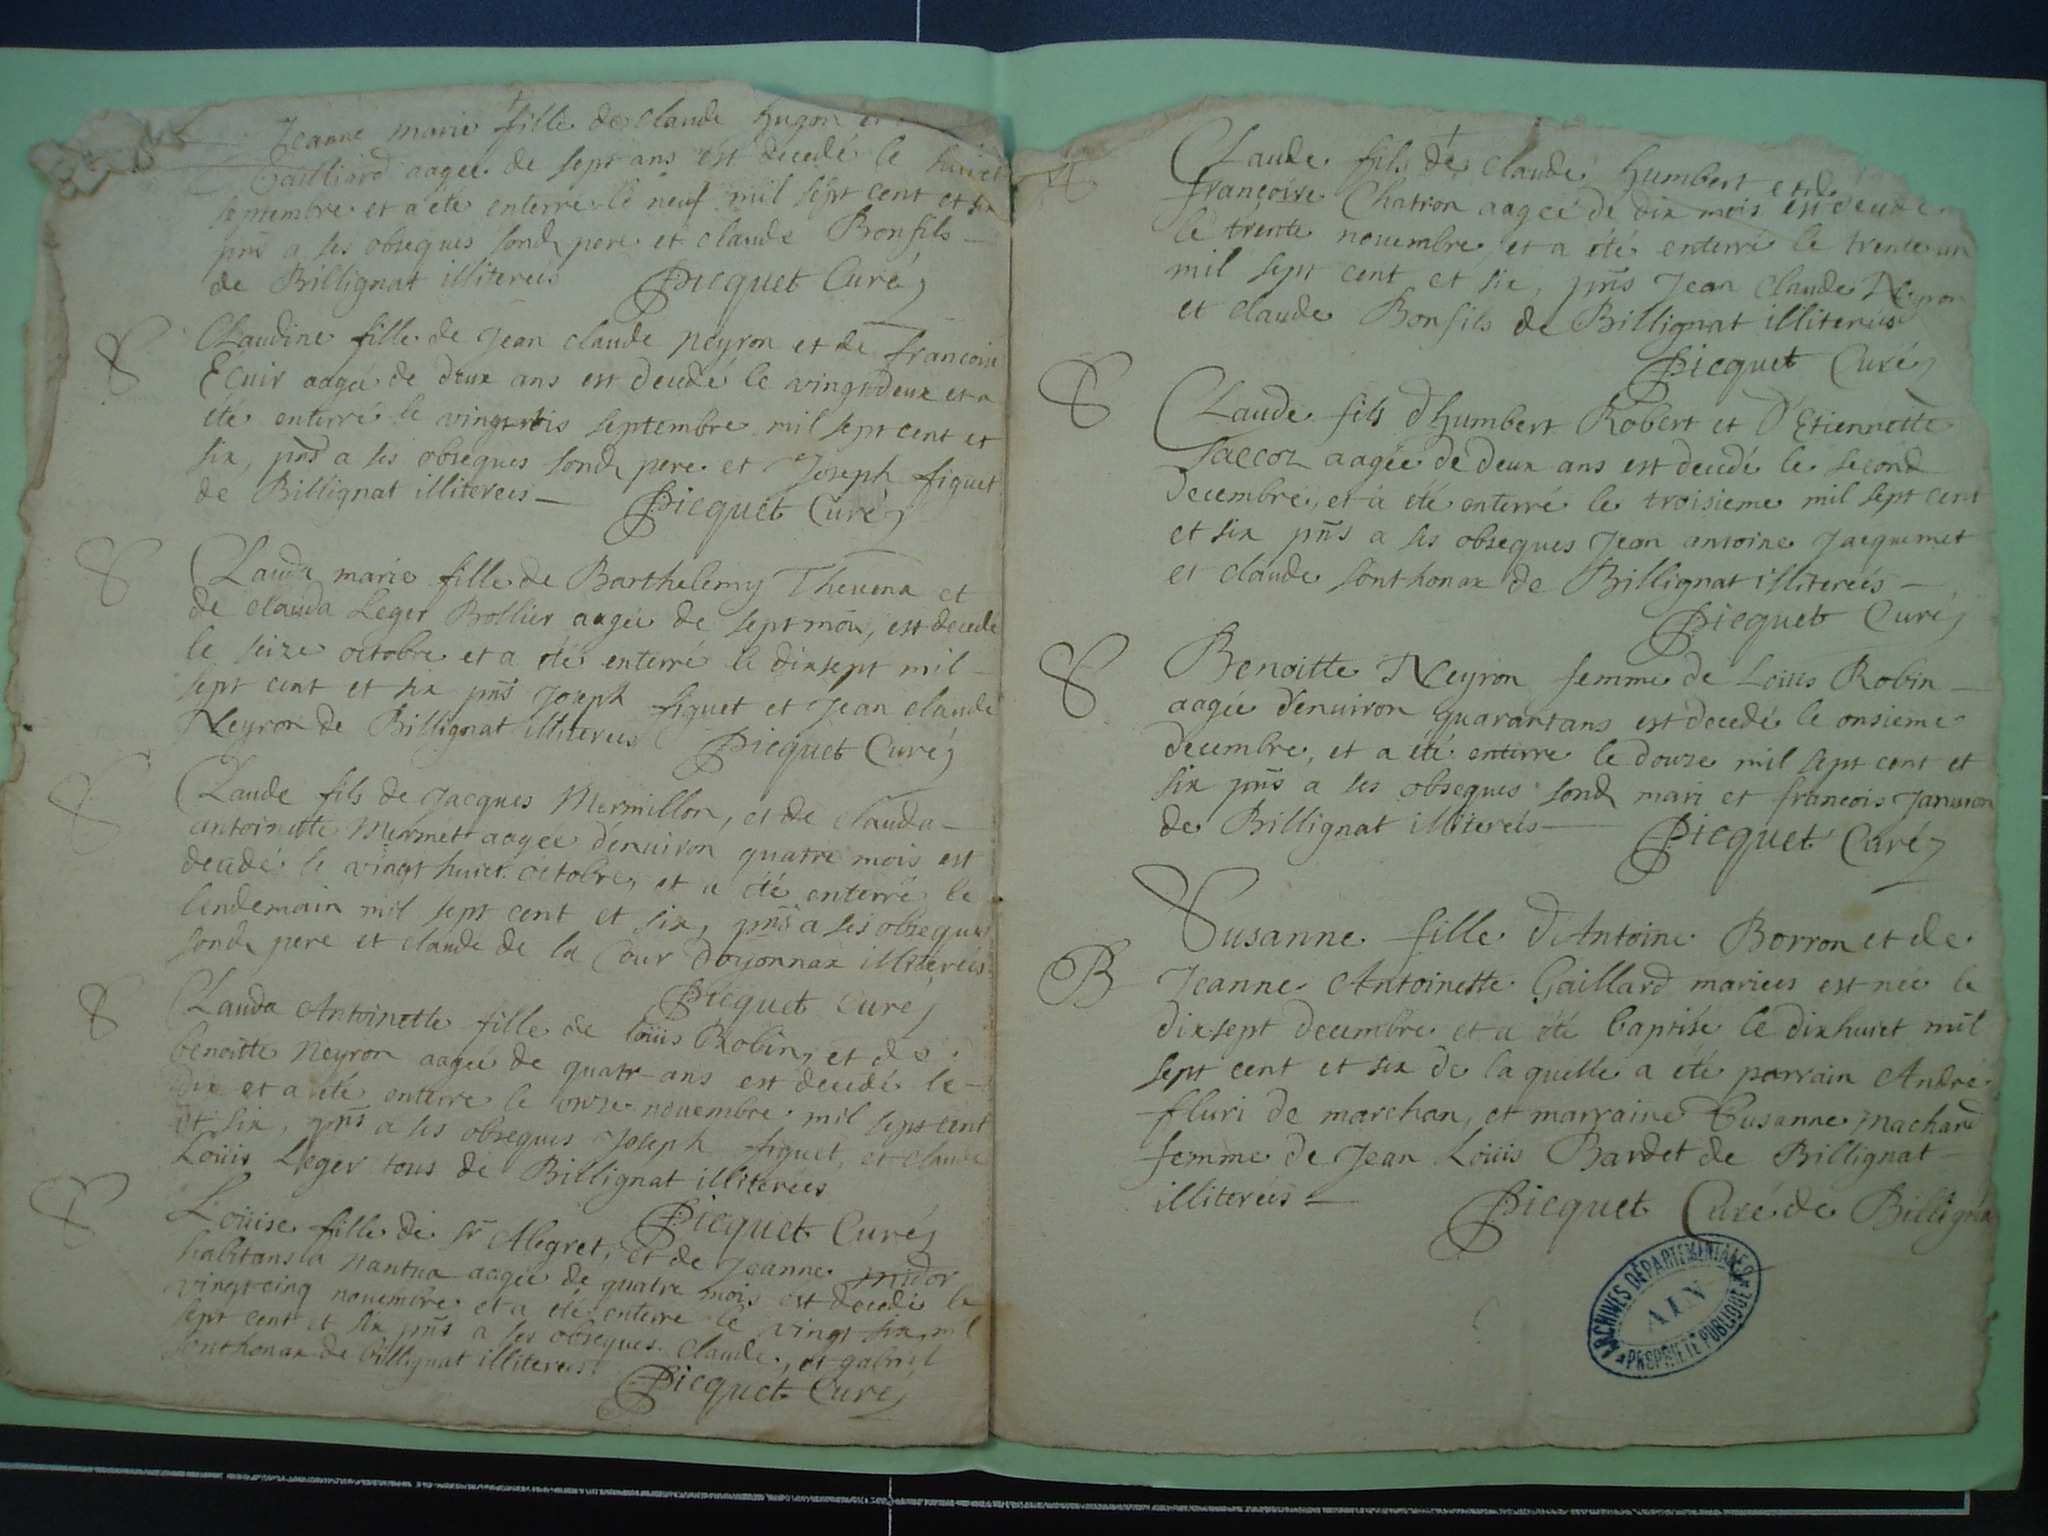 Jeanne marie fille de Claude hugon et
Gailliard aagee de sept ans est decedé le huict
septembre et a été enterre le neuf mil sept cent et six
pns̄ a ses obseques sond pere et claude Bonfils
de Billignat illiterees Picquet Curé
S Claudine fille de Jean claude neyron et de francoise
Ecuir aagée de deux ans est decedé le vingtdeux et a
été enterré le vingtrois septembre mil sept cent et
six, pns̄ a ses obseques sond pere et Joseph figuet
de Billignat illiterees Picquet Curé
S Clauda marie fille de Barthelemy Thevenx et
de clauda Leger Brollier aagée de sept mois, est decedé
le seize octobre et a été enterré le dixsept mil
sept cent et six pns̄ Joseph figuet et Jean claude
Neyron de Billignat illiterees Picquet Curé
S Claude fils de Jacques Mermillon, et de clauda
antoinette Mermet aagée denuiron quatre mois est
decedé le vingt huict octobre, et a été enterré le
lendemain mil sept cent et six, pns̄ a ses obseques
sond pere et claude de la Cour doyonnax illiterees
Picquet Curé
S Clauda Antoinette fille de loüis Robin, et de
benoitte neyron aagée de quatr ans est decedé le
dix et a été enterre le onze nouembre mil sept cent
et six, pns̄ a ses obseques Joseph figuet, et claude
Loüis Leger tous de Billignat illiterees
Picquet Curé
S Loüise fille de Sr Alegret, et de Jeanne
habitans a nantua aagée de quatre mois est decedé le
vingt cinq nouembre et a été enterre le vingt six mil
sept cent et six pns̄ a ses obseques claude, et gabriel
sonthonax de billignat illiterees Picquet Curé
S Claude fils de claude humbert et de
françoise Chatron aagée de dix mois est decede
le trente nouembre et a été enterré le trente un
mil sept cent et six, pns̄ Jean claude Neyron
et claude Bonfils de Billignat illiterees
Picquet Curé
S Claude fils dhumbert Robert et D'Etiennette
Jaccoz aagée de deux ans est decedé le second
decembre, et a été enterré le troisieme mil sept cent
et six pns̄ a ses obseques Jean antoine Jacquemet
et claude sonthonax de Billignat illitereés
Picquet Curé
S Benoitte Neyron femme de Loüis Robin
aagée denuiron quarantans est decedé le onsieme
decembre, et a été enterre le douze mil sept cent et
six pns̄ a ses obseques sond mari et francois
de Billignat illitereés Picquet Curé
Susanne fille d'Antoine Borron et de
B Jeanne Antoinette Gaillard mariees est née le
dixsept decembre et a été baptisé le dixhuict mil
sept cent et six de laquelle a été parrain André
fluri de marchon, et marraine Susanne machard
femme de Jean Loüis Bardet de Billignat
illitereés Picquet Curé de Billigna
ARCHIVES DÉPARTEMENTALES
AIN
PROPRIÉTÉ PUBLIQUE